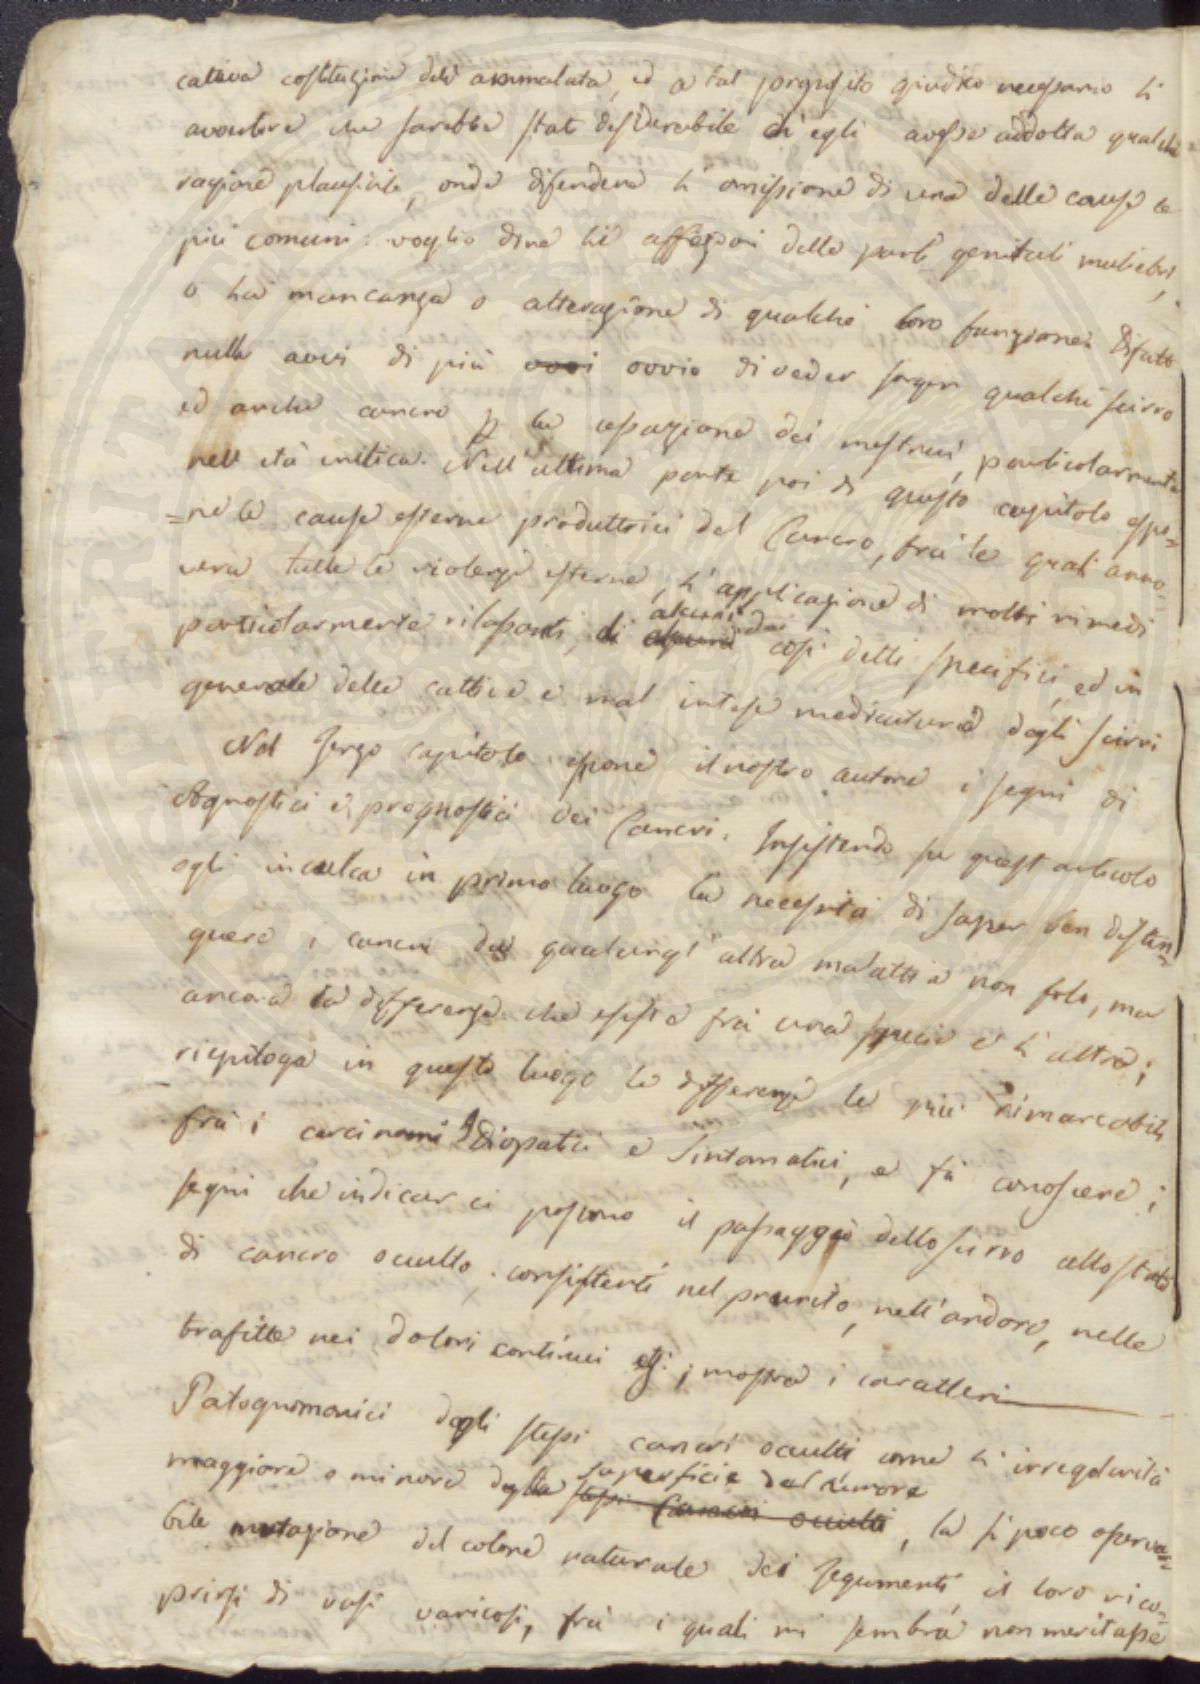 cativa costituzione dell' ammalata, ed a tal proposito giudico necessario l'
avvertire che sarebbe stat desiderabile ch'egli avesse addotta qualche
ragione plausibile, onde difendere l' omissione di una delle cause le
più comuni: voglio dire le affezioni delle parti genitali muliebri,
o la mancanza o alterazione di qualche loro funzione. Difatti
nulla avvi di più ovvio di veder sorger qualche scirro
ed anche cancro p la cessazione dei mestrui, particolarmente
nell' età critica. Nell' ultima parte poi di questo capitolo espo=
=ne le cause esterne produttrici del Cancro, fra le quali anno=
vera tutte le violenze esterne, l' applicazione di molti rimedi
particolarmente rilassanti, di alcuni dei così detti specifici, ed in
generale delle cattive e mal intese medicature degli scirri
Nel terzo capitolo espone il nostro autore i segni di
Agnostici e prognostici dei Cancri. Insistendo su quest articolo
egli inculca in primo luogo la necessità di saper ben distin=
guere i cancri da qualungl' altra malattia non solo, ma
ancora la differenza che esiste fra una specie e l' altra;
riepiloga in questo luogo le differenze le più rimarcabili
fra i carcinomi Idiopatici e Sintomatici, e fà conoscere i
segni che indicar ci possono il passaggio dello scirro allo stato
di cancro occulto, consistenti nel prurito, nell' ardore, nelle
trafitte nei dolori continui ; mostra i caratteri
Patognomonici degli stessi cancri occulti come l' irregolarità
maggiore o minore della superficie del tumore
stessi Cancri occulti, la sì poco osserva=
bile mutazione del colore naturale dei tegumenti, il loro rico=
prirsi di vasi varicosi, fra i quali mi sembra non meritasse